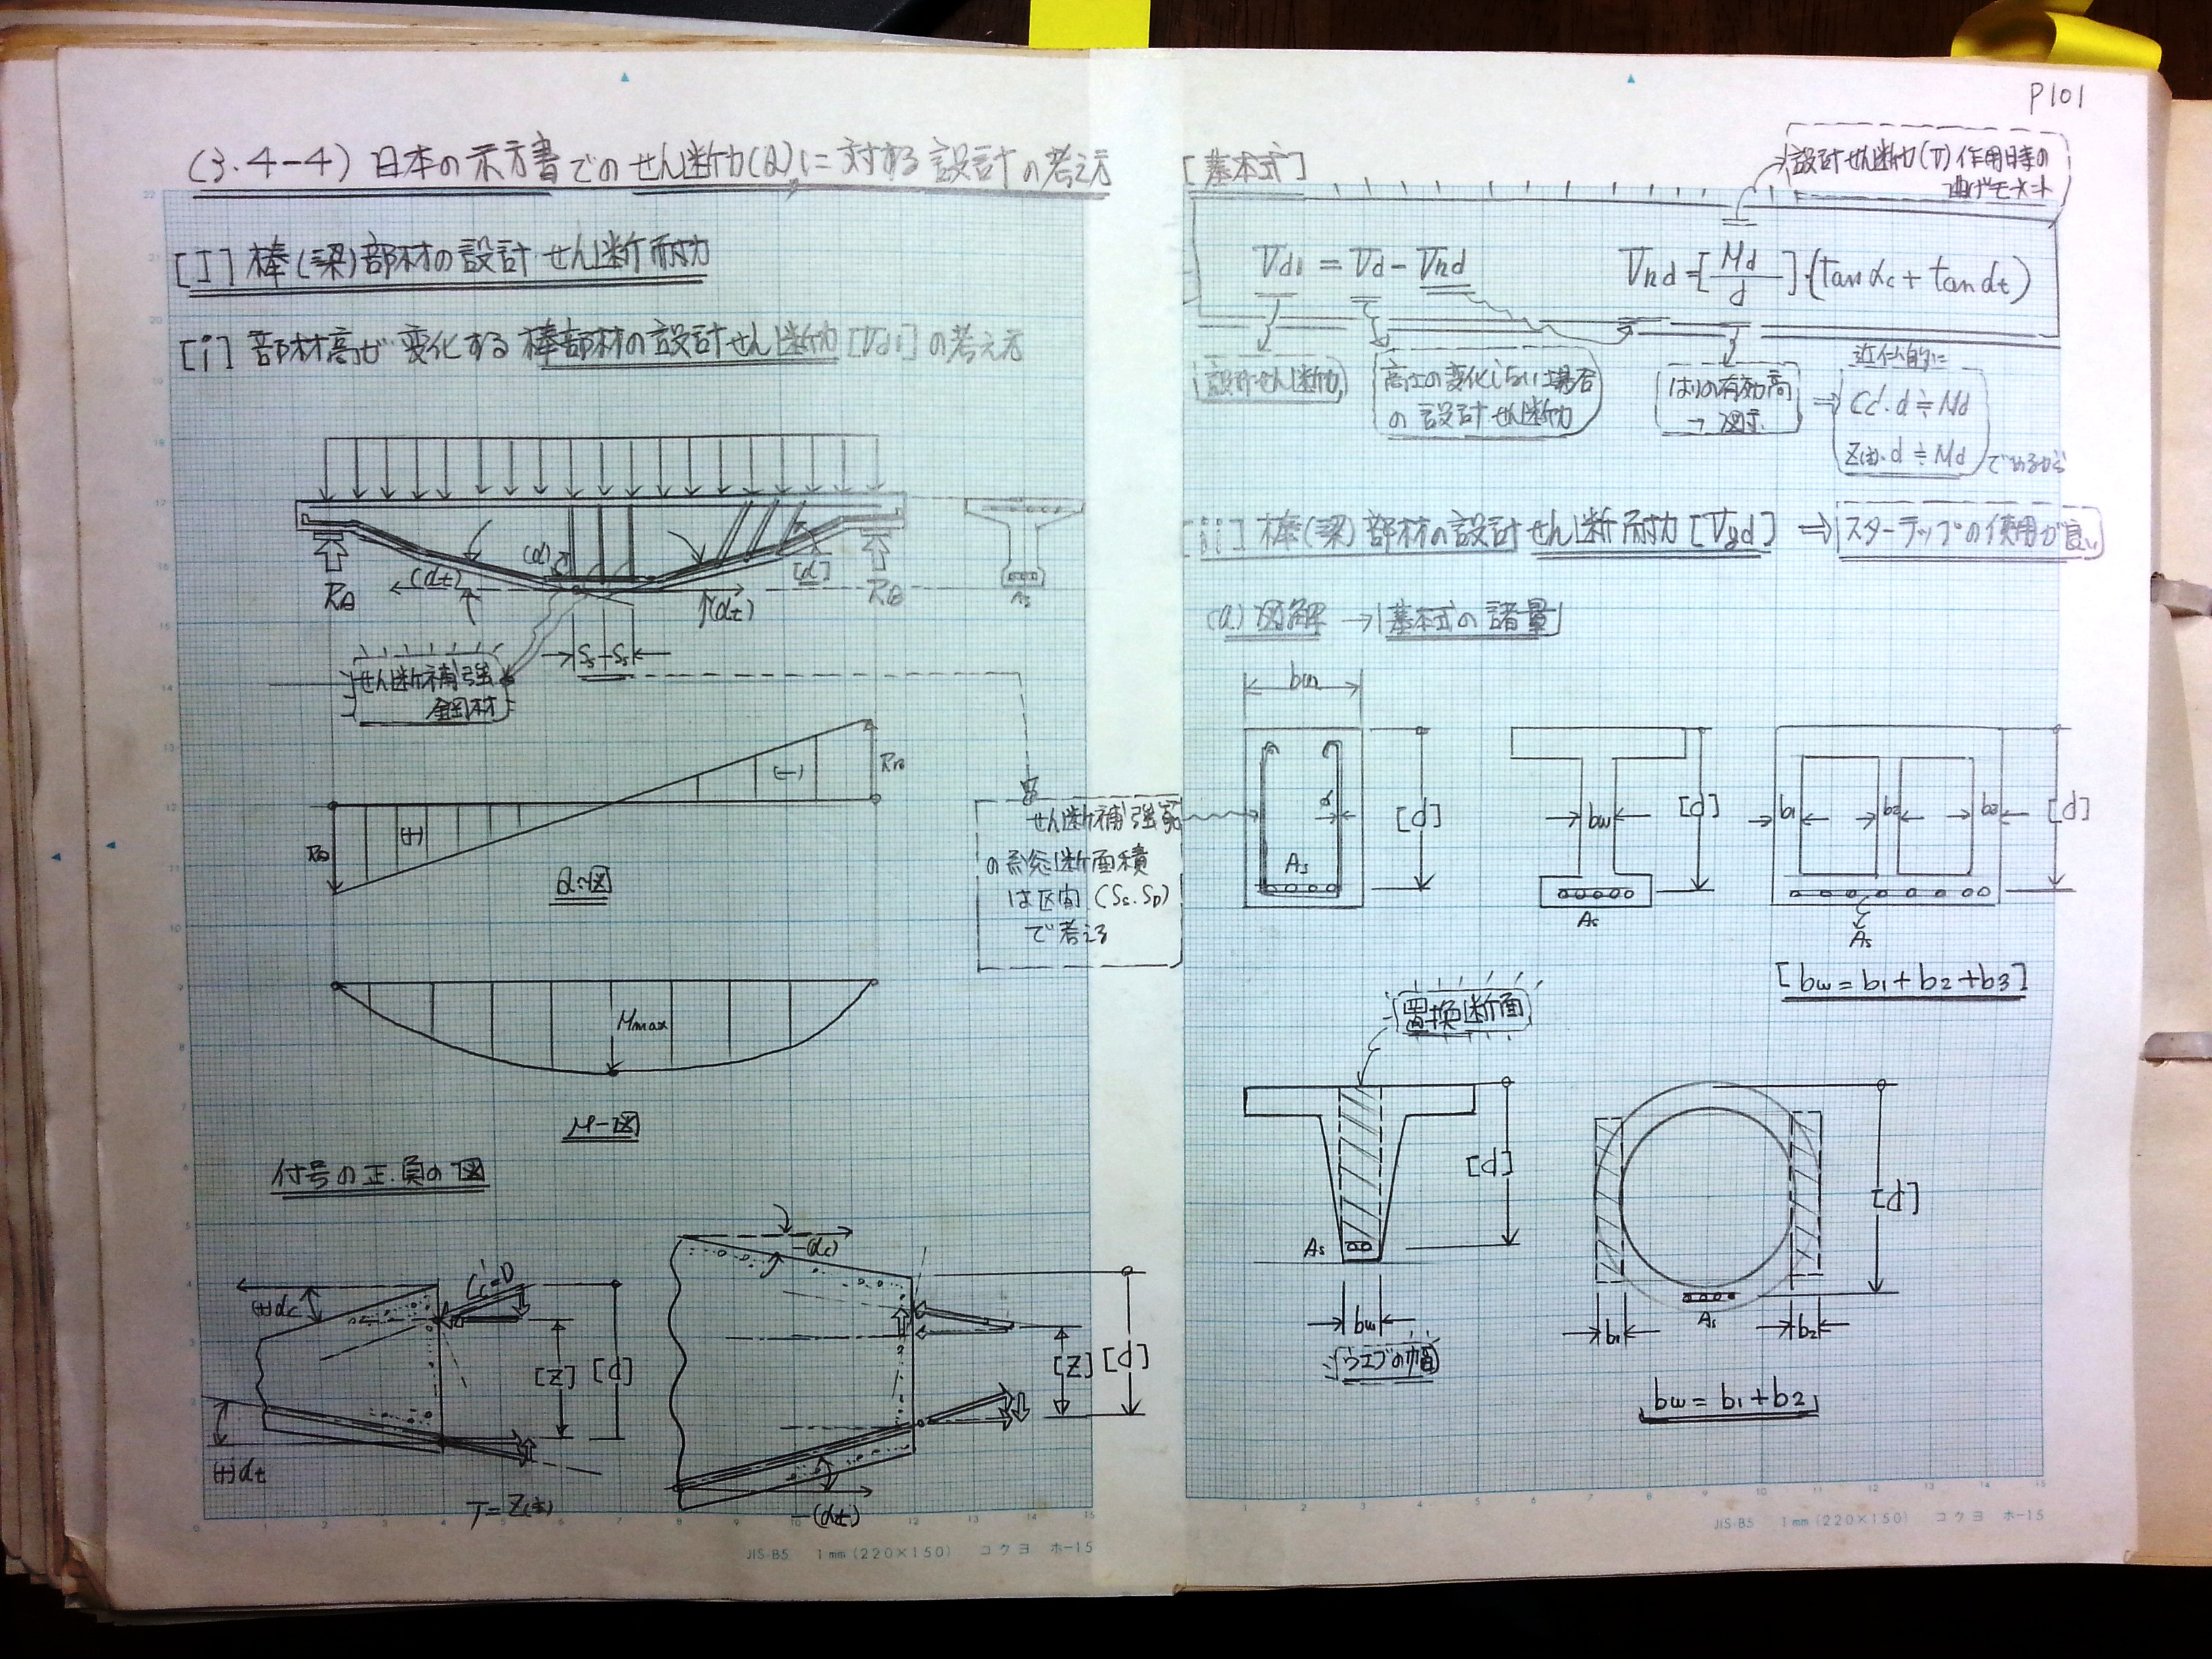 P101
(3.4-4) 日本の示方書でのせん断力(Q)に対する設計の考え方
[I] 棒(梁)部材の設計せん断耐力
[i] 部材高が変化する棒部材の設計せん断力[Vd1]の考え方
(α)
(αt)
[d]
(αt)
RA
RB
As
Ss
Ss
せん断補強
鋼材
(+)
(-)
RB
Q-図
せん断補強筋
の総断面積
は区間(Ss.Sp)
で考える
Mmax
M-図
付号の正.負の図
(+)αc
[z]
[d]
(+)αt
-(αc)
[z]
[d]
-(αt)
[基本式]
設計せん断力(V)作用時の
曲げモーメント
Vd1 = Vd - Vhd
Vhd = [Md/d]·(tanαc + tanαt)
設計せん断力
高さの変化しない場合
の設計せん断力
はりの有効高
→図示
近似的に
Cc'.d ≒ Md
であるから
[ii] 棒(梁)部材の設計せん断耐力[Vyd] ⇒ スターラップの使用が良い
(a) 図解 → 基本式の諸量
bw
As
[d]
bw
[d]
As
b1
b2
b3
[d]
As
[bw = b1 + b2 + b3]
置換断面
[d]
As
bw
ウエブの幅
[d]
As
b1
b2
bw = b1 + b2
JIS-B5 1mm(220×150) コクヨ ホ-15
JIS-B5 1mm(220×150) コクヨ ホ-15